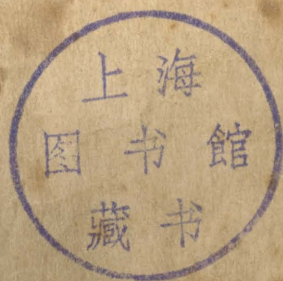 上海
图书館
藏书